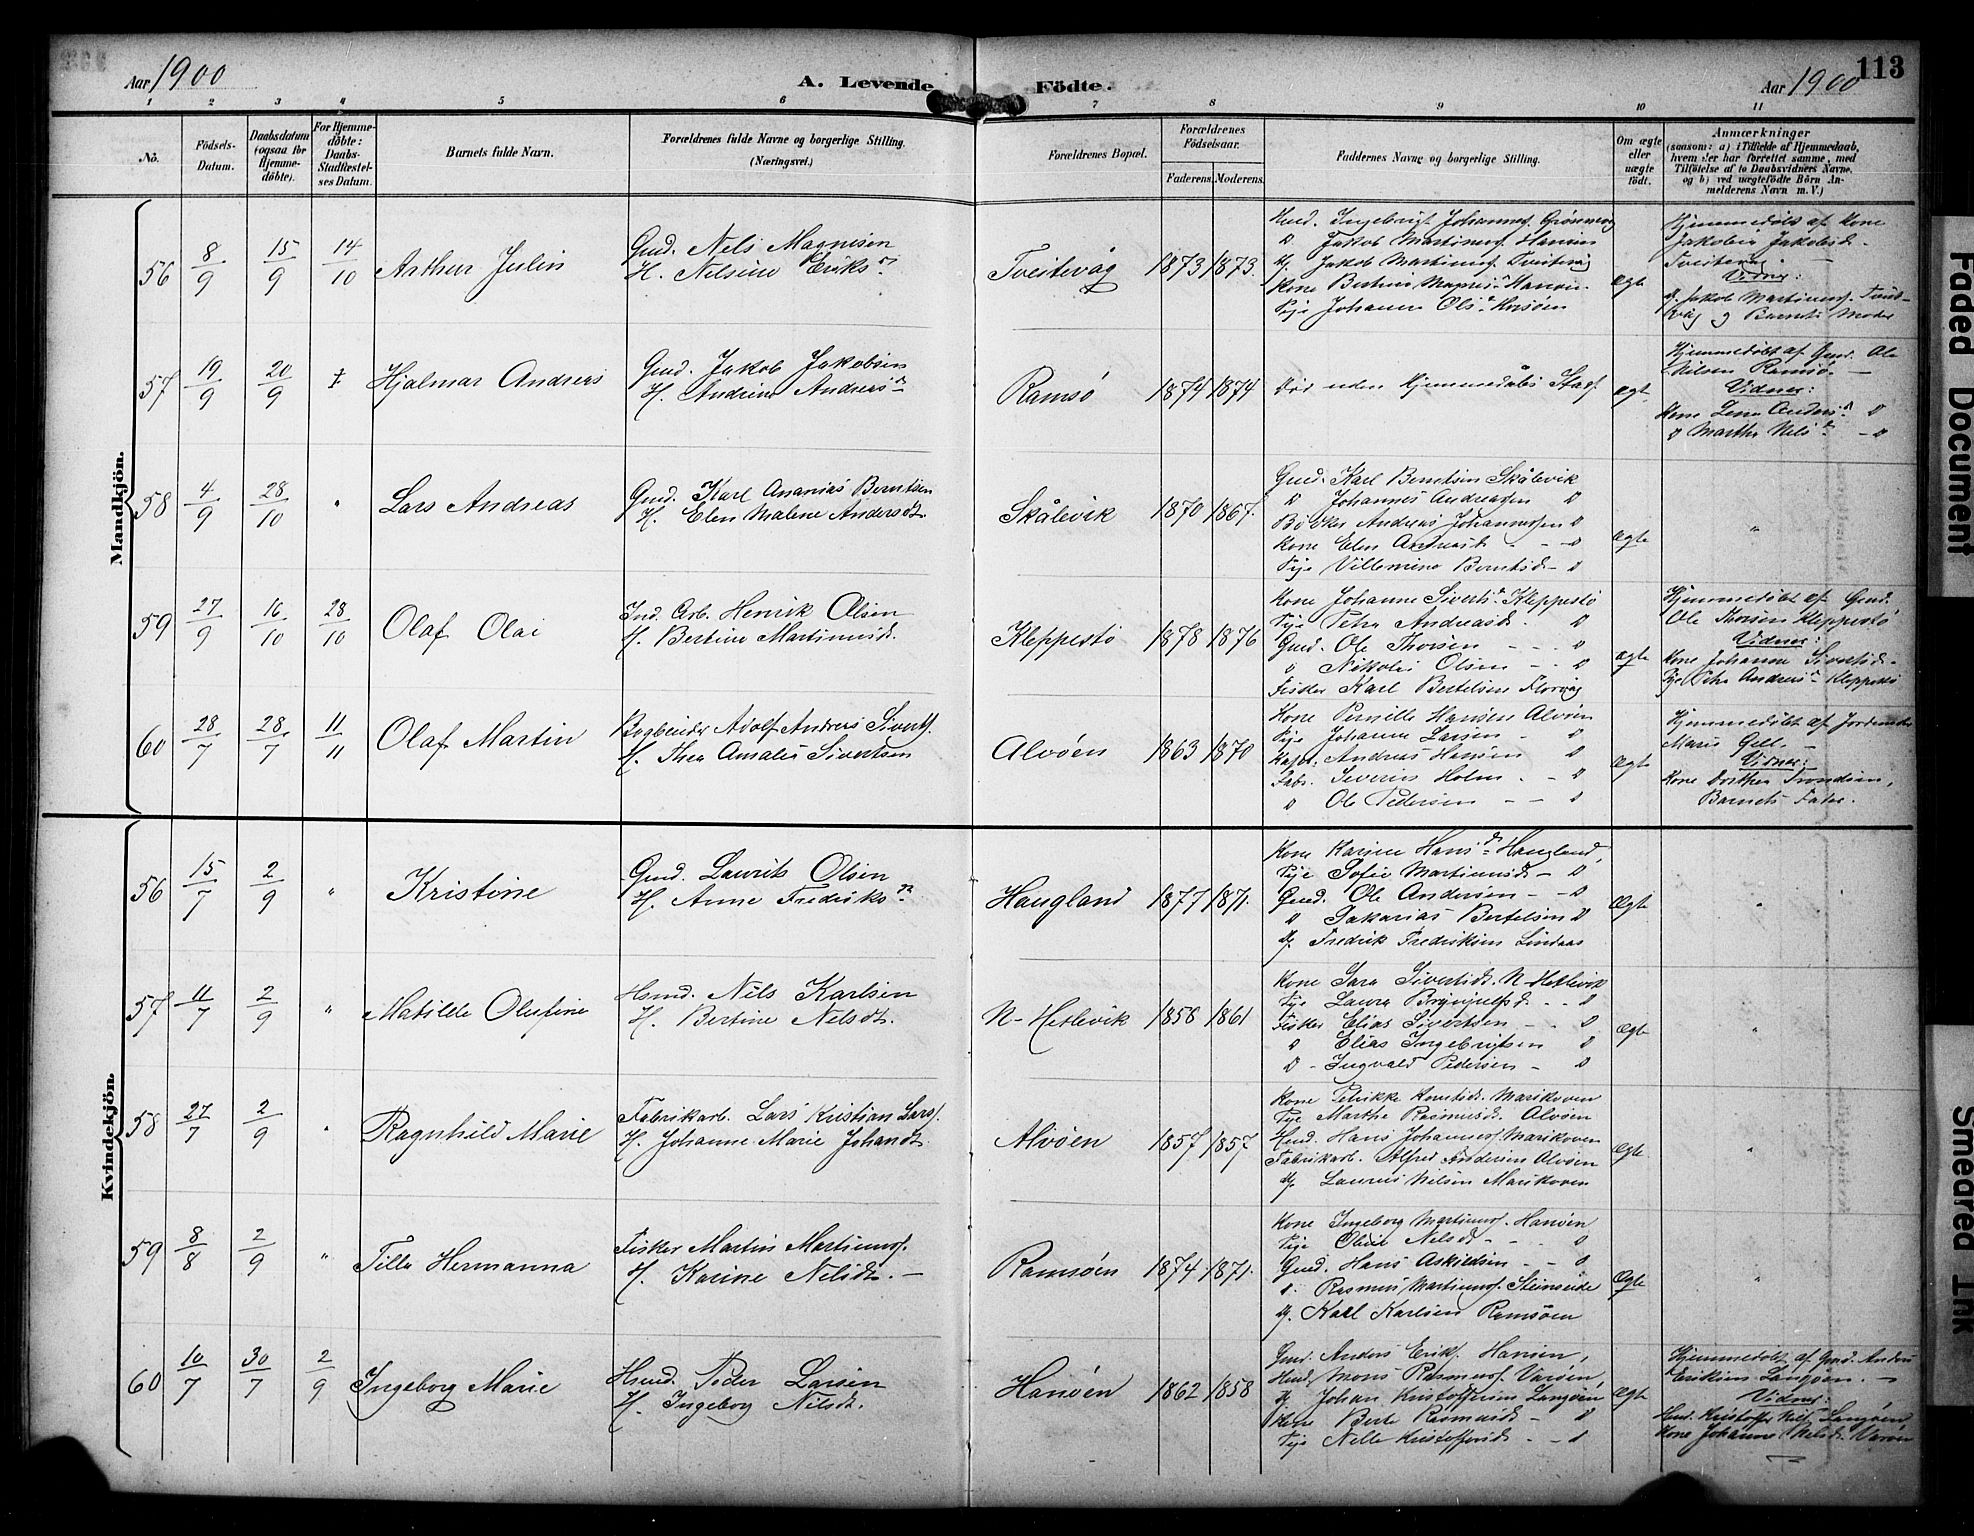 Aar 1900
A. Levende
Födte.
Aar 1900
113
1 2 3 4 5 6 7 8 9 10 11
No.
Födsels-Datum.
Daabsdatum (ogsaa for Hjemme-döbte).
For Hjemme-döbte: Daabs-Stadfæstel-ses Datum.
Barnets fulde Navn.
Forældrenes fulde Navne og borgerlige Stilling. (Næringsvei.)
Forældrenes Bopæl.
Forældrenes Födselsaar.
Faderens. Moderens.
Faddernes Navne og borgerlige Stilling.
Om ægte eller uægte födt.
Anmærkninger
(saasom: a) i Tilfælde af Hjemmedaab,
hvem der har forrettet samme, med
Tilföielse af to Daabsvidners Navne,
og b) ved uægtefödte Börn An-
melderens Navn m. V.)
Mandkjön.
56 8/9 15/9 14/10 Arthur Julin
Gmd. Nels Magnisen
H. Nelsine Eriksd.
Tveitevåg 1873 1873.
D Jakob Martinus. Hanøen
Kone Bertine Magnisd. Hanøen
Pige Johanne Olsd.
Ægte
Hjemmedøbt af Kone
Jakobia Jakobsd.
Tveitevåg.
Vidner:
Jakob Martinus. Tveite-
våg og Barnets Moder
57 19/9 20/9 ‡ Hjalmar Andreas
Gmd. Jakob Jakobsen
H. Andrine Andersd.
Ramsö 1874 1874
Død uden Hjemmedåbs Stadf.
Ægte
Hjemmedøbt af Gmd. Ole
Nilsen Ramsö. —
Vidner:
Kone Lena Andersd. D
D Martha Nelsd. — D
58 4/9 28/10 " Lars Andreas
Gmd. Karl Ananias Berntsen
H. Elen Malene Andersdt.
Skålevik 1870 1867.
Gmd. Karl Berntsen Skålevik
D Johannes Andreasen D
Bødker Andreas Johannessen D
Kone Elen Andreasd. - - D
Pige Villemine Berntsd. - D
Ægte
"
59 27/9 16/10 28/10 Olaf Olai
Ind. Arb. Henrik Olsen
H. Bertine Martinusd.
Kleppestö 1878 1876
Kone Johanne Sivertsd. Kleppestö
Pige Petra Andreasd. D
Gmd. Ole Thorsen - - - D
D Nikolai Olsen - - D
Fisker Karl Bertelsen Florvåg
Ægte
Hjemmedøbt af Gmd.
Ole Thorsen Kleppestö
Vidner:
Kone Johanne Sivertsd.
Pige Petra Andersd. Kleppestö
60 28/7 28/7 11/11 Olaf Martin
Bogbinder Adolf Andreas Siverts.
H. Thea Amalie Sivertsen
Alvøen 1863 1870
Kone Pernille Hansen Alvøen
Pige Johanne Larsen - D
Kapt. Andreas Hansen D
Fabr. Severin Holm. - D
D Ole Pedersen - - D
Ægte
Hjemmedøbt af Jordemoder
Marie Gell. -
Vidner:
Kone Dorthea
Barnets Fader.
Kvindekjön.
56 15/7 2/9 " Kristine
Gmd. Laurits Olsen
H. Anne Fredriksd.
Haugland 1877 1871.
Kone Karine Hansd. Haugland,
Pige Sofie Martinusd. - D
Gmd. Ole Andersen - - D
D Sakarias Bertelsen D
Fredrik Fredriksen Lindaas
Ægte
"
57 11/7 2/9 " Matilde Olufine
Hsmd. Nils Karlsen
H. Bertine Nelsdt.
N-Hetlevik 1858 1861
Kone Sara Sivertsdt. N-Hetlevik
Pige Laura Brynjulfsd. - - D
Fisker Elias Sivertsen - - D
D Elias Ingebrigtsen D
D - Ingvald Pedersen - D
Ægte
"
58 27/7 2/9 " Ragnhild Marie
Fabrikarb. Lars Kristian Lars.
H. Johanne Marie Johansdt.
Alvøen 1857 1857
Kone Petrikke Marikoven
Pige Marthe Rasmusd. Alvøen
Hmd. Hans Johannes. Marikoven
Fabrikarb. Alfred Andersen Alvøen
Laurits Nilsen Marikoven
Ægte
"
59 8/8 2/9 " Tilla Hermanna
Fisker Martin Martinus.
H. Karine Nelsdt. —
Ramsöen 1874 1871.
Kone Ingeborg Martinus. Hanøen
Pige Olivie Nelsd. - - D
Gmd. Hans Askildsen - - D
D. Rasmus Martinus. Steinseide
Karl Karlsen Ramsöen
Ægte
"
60 10/7 30/7 2/9 Ingeborg Marie
Hsmd. Peder Larsen
H. Ingeborg Nilsdt.
Hanøen 1862 1858
Gmd. Anders Eriks. Hanøen,
Hmd. Mons Rasmus. Varøen
Johan Kristoffersen Langøen
Kone Berte Rasmusd. - D
Pige Nelle Kristoffersd. - D
Ægte
Hjemmedøbt af Gmd. Anders
Eriksen Langøen. —
Vidner:
Hmd. Kristoffer Nils. Langøen
Kone Johanne Nelsd. Varøen
Faded Document
Smeared Ink